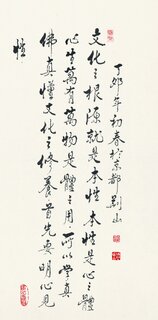 丁卯年初春於京都
文化之根源就是本性本性是心之體
心生萬有萬物是體之用所以學真
佛真懂文化之修養首先要明心見
性